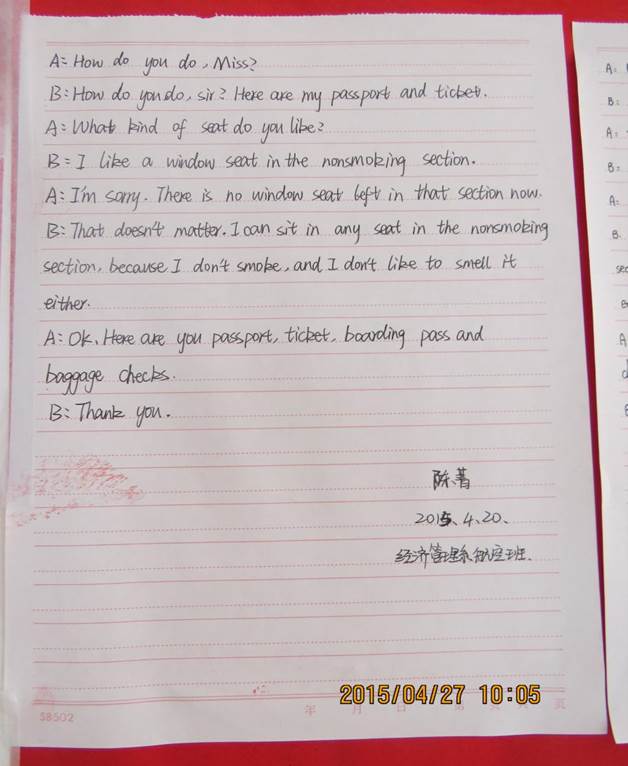 A: How do you do, Miss?
B: How do you do, sir? Here are my passport and ticket.
A: What kind of seat do you like?
B: I like a window seat in the nonsmoking section.
A: I'm sorry. There is no window seat left in that section now.
B: That doesn't matter. I can sit in any seat in the nonsmoking
section, because I don't smoke, and I don't like to smell it
either.
A: Ok. Here are you passport, ticket, boarding pass and
baggage checks.
B: Thank you.
2015、4、20、
经济管理系航空班.
58502
年 月 日 第 页
2015/04/27 10:05
A:
B:
A:
B:
A:
B.
sec
A